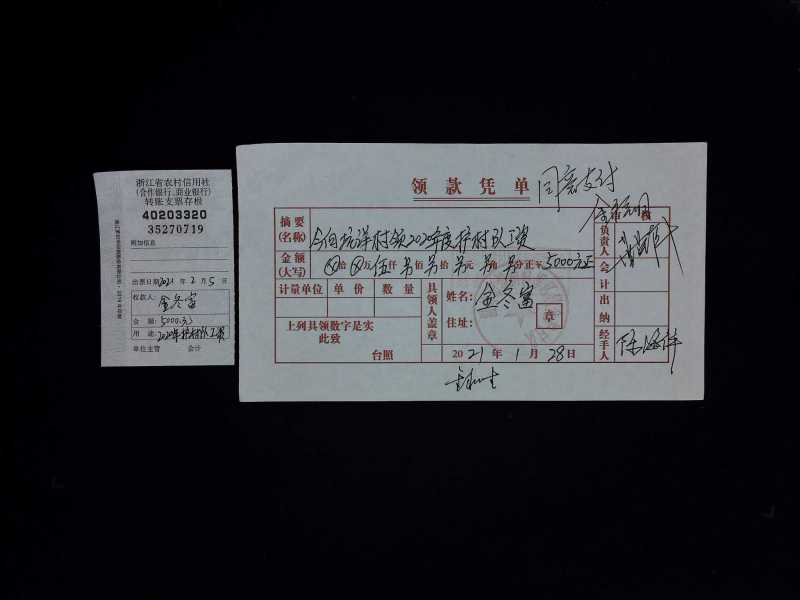 浙江省农村信用社
(合作银行、商业银行)
转账支票存根
40203320
35270719
附加信息
出票日期 2021 年 2 月 5 日
收款人:
金冬富
金 额: 5000.00
用 途: 2020年护村队工资
单位主管 会计
领款凭单
同意支付
摘要(名称) 今向坑洋村领2020年度护村队工资
审 核
金额(大写) 拾 万 仟 伍 佰 拾 元 角 分正¥ 5000元正
负责人
会计
计量单位 单价 数量
具领人盖章
姓名: 金冬富
住址:
章
出纳
上列具领数字是实
此致
台照
2021 年 1 月 28 日
经手人